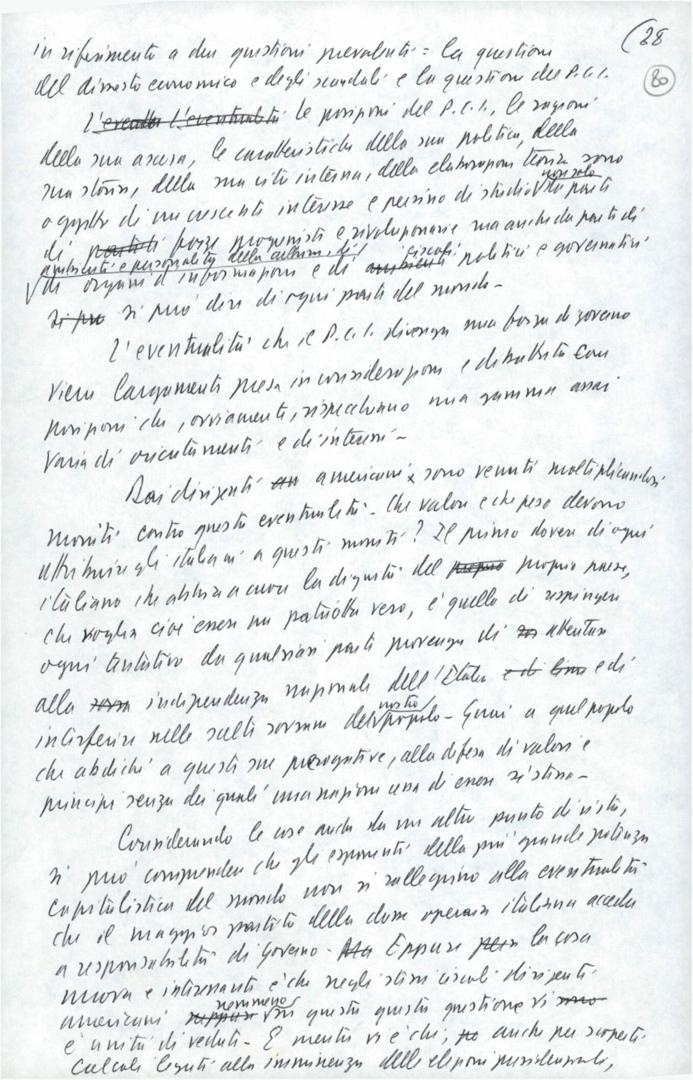 (28
80
in riferimento a due questioni prevalenti: la questione
del dissesto economico e degli scandali e la questione del P.C.I.
L'eventualità le posizioni del P.C.I., le ragioni
della sua ascesa, le caratteristiche della sua politica, della
sua storia, della sua vita interna, della elaborazione teorica sono
oggetto di un crescente interesse e persino di studio non solo da parte
di partiti forze progressiste e rivoluzionarie ma anche da parte di
ambienti e personalità della cultura, di
di organi d'informazione e di ambienti circoli politici e governativi
si può si può dire di ogni parte del mondo -
L'eventualità che il P.C.I. divenga una forza di governo
viene largamente presa in considerazione e dibattuta con
posizioni che, ovviamente, rispecchiano una gamma assai
varia di orientamenti e di interessi -
Dai dirigenti americani sono venuti moltiplicandosi
moniti contro questa eventualità. Che valore e che peso devono
attribuire gli italiani a questi moniti? Il primo dovere di ogni
italiano che abbia a cuore la dignità del proprio paese,
che voglia cioè essere un patriota vero, è quello di respingere
ogni tentativo da qualsiasi parte provenga di attentare
alla indipendenza nazionale dell'Italia e di
interferire nelle scelte sovrane del nostro popolo - Guai a quel popolo
che abdichi a queste sue prerogative, alla difesa di valori e
principi senza dei quali una nazione cessa di essere se stessa -
Considerando le cose anche da un altro punto di vista,
si può comprendere che gli esponenti della più grande potenza
capitalistica del mondo non si rallegrino alla eventualità
che il maggior partito della classe operaia italiana acceda
a responsabilità di governo - Ma Eppure la cosa
nuova e interessante è che negli stessi circoli dirigenti
americani neppure nemmeno su questa questione vi
è unità di vedute - E mentre vi è chi, anche per scoperti
calcoli legati alla imminenza delle elezioni presidenziali,